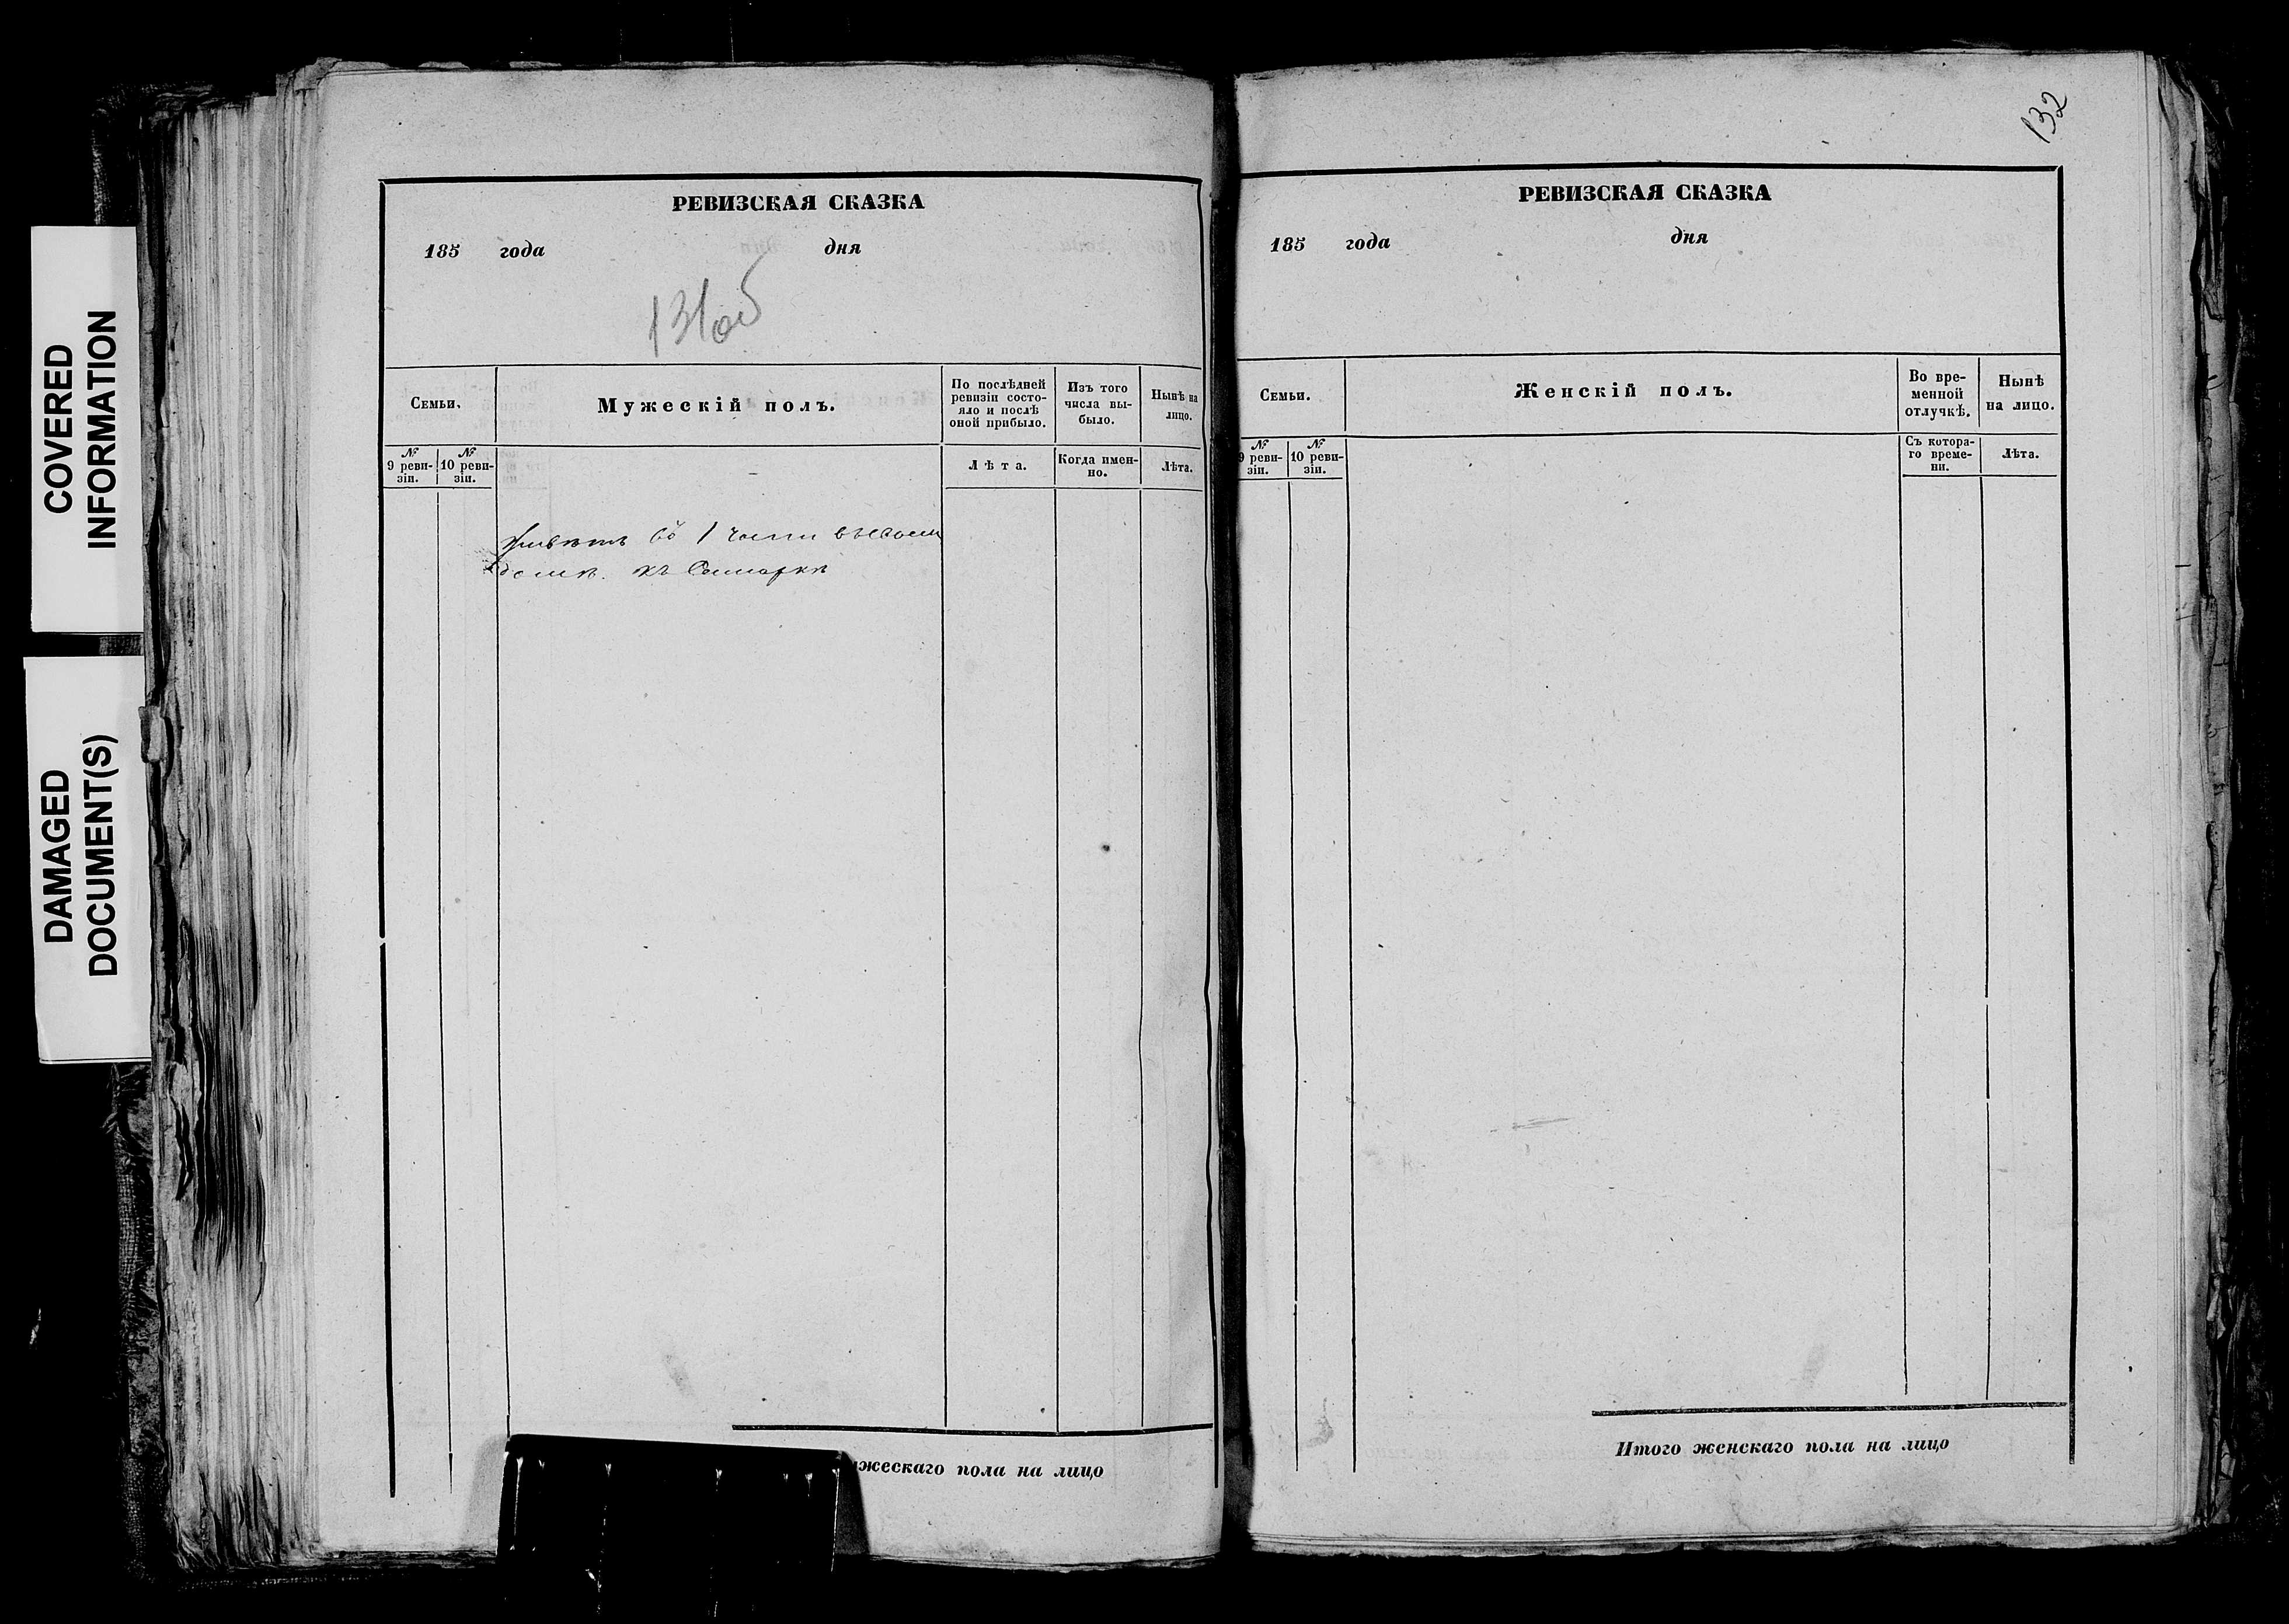 COVERED
INFORMATION
DAMAGED
DOCUMENT(S)
РЕВИЗСКАЯ СКАЗКА
185 года дня
131об
Семьи.
Мужескій полъ.
По послѣдней
ревизіи состо-
яло и послѣ
оной прибыло.
Изъ того
числа вы-
было.
Нынѣ на
лицо.
№
9 реви-
зіи.
№
10 реви-
зіи.
Лѣта.
Когда имен-
но.
Лѣта.
1 части
домѣ. къ
жескаго пола на лицо
132
РЕВИЗСКАЯ СКАЗКА
185 года дня
Семьи.
Женскій полъ.
Во вре-
менной
отлучкѣ.
Нынѣ
на лицо.
№
9 реви-
зіи.
№
10 реви-
зіи.
Съ котора-
го време-
ни.
Лѣта.
Итого женскаго пола на лицо